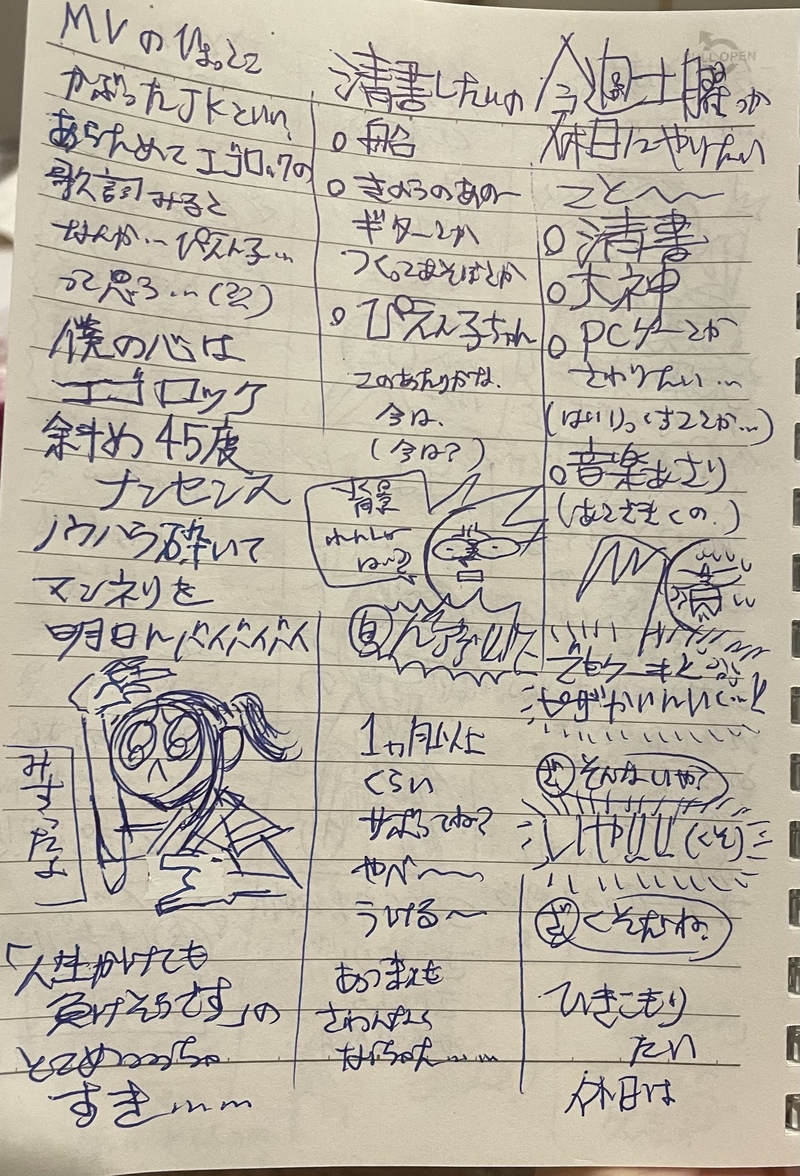 MVのひょっとこ
かぶったJKといい、
あらためてエゴロックの
歌詞みると
なんか… ぴえん子…
って思う…(??)
僕の心は
エゴロック
斜め45度
ナンセンス
ノウハウ砕いて
マンネリを
明日にバイバイバイ
みすったよ
「人生かけても
負けそうです」の
とこてめっっっちゃ
すき……
清書したいの
○ 船
○ きょうのあの〜
ギターとか
つくってあそぼとか
○ ぴえん子ちゃん
このあたりかな。
今は、
(今は?)
背景
れんしゅう
は〜?
1ヵ月以上
くらい
サボってね?
やべ〜〜
うける〜
なくちゃん……
今週土曜つか
休日にやりたい
こと〜〜
○ 清書
○ 大神
○ PCゲーとか
さわりたい…
○ 音楽あさり
でもケーキとか
そんないや?
いやーーー(くそ)
くそだね。
ひきこもり
たい
休日は